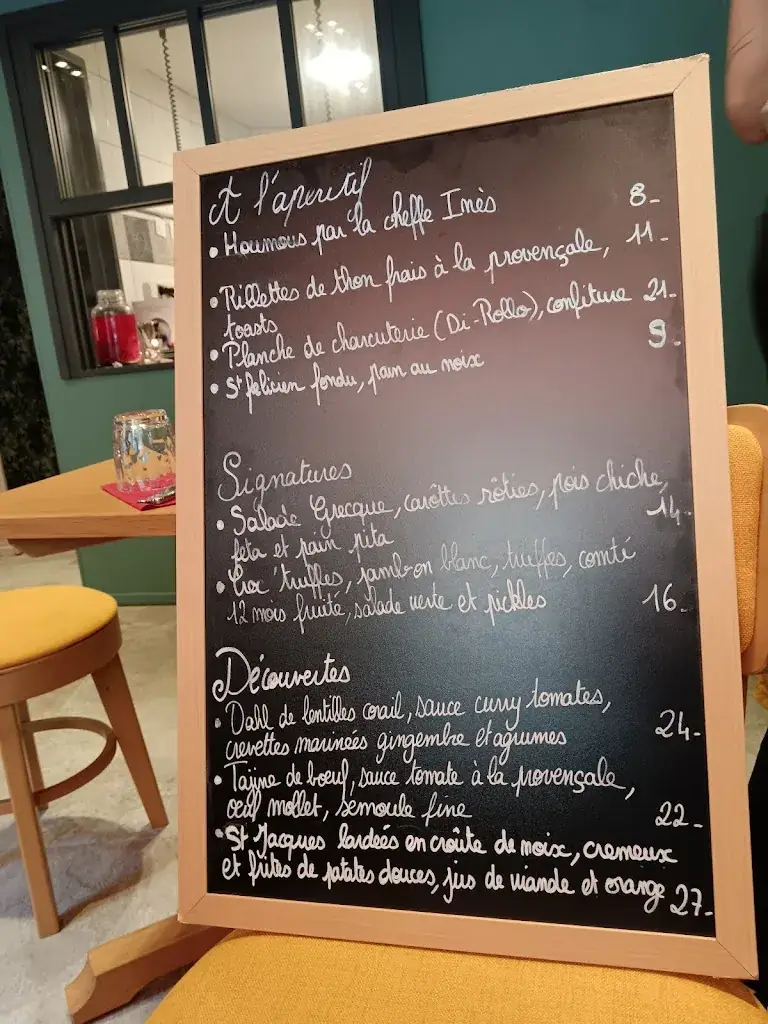 A l'aperitif
• Houmous par la cheffe Inès 8-
• Rillettes de thon frais à la provençale, 11-
toasts
• Planche de charcuterie (Di-Rollo), confiture 21-
• St felicien fondu, pain au noix 9-
Signatures
• Salade Grecque, carôttes rôties, pois chiche,
feta et pain pita 14-
• Croc'truffes, jambon blanc, truffes, comté
12 mois fruité, salade verte et pickles 16-
Découvertes
• Dahl de lentilles corail, sauce curry tomates,
crevettes marineés gingembre et agrumes 24-
• Tajine de bœuf, sauce tomate à la provençale,
œuf mollet, semoule fine 22-
• St Jacques lardées en croûte de noix, cremeux
et frites de patates douces, jus de viande et orange 27-